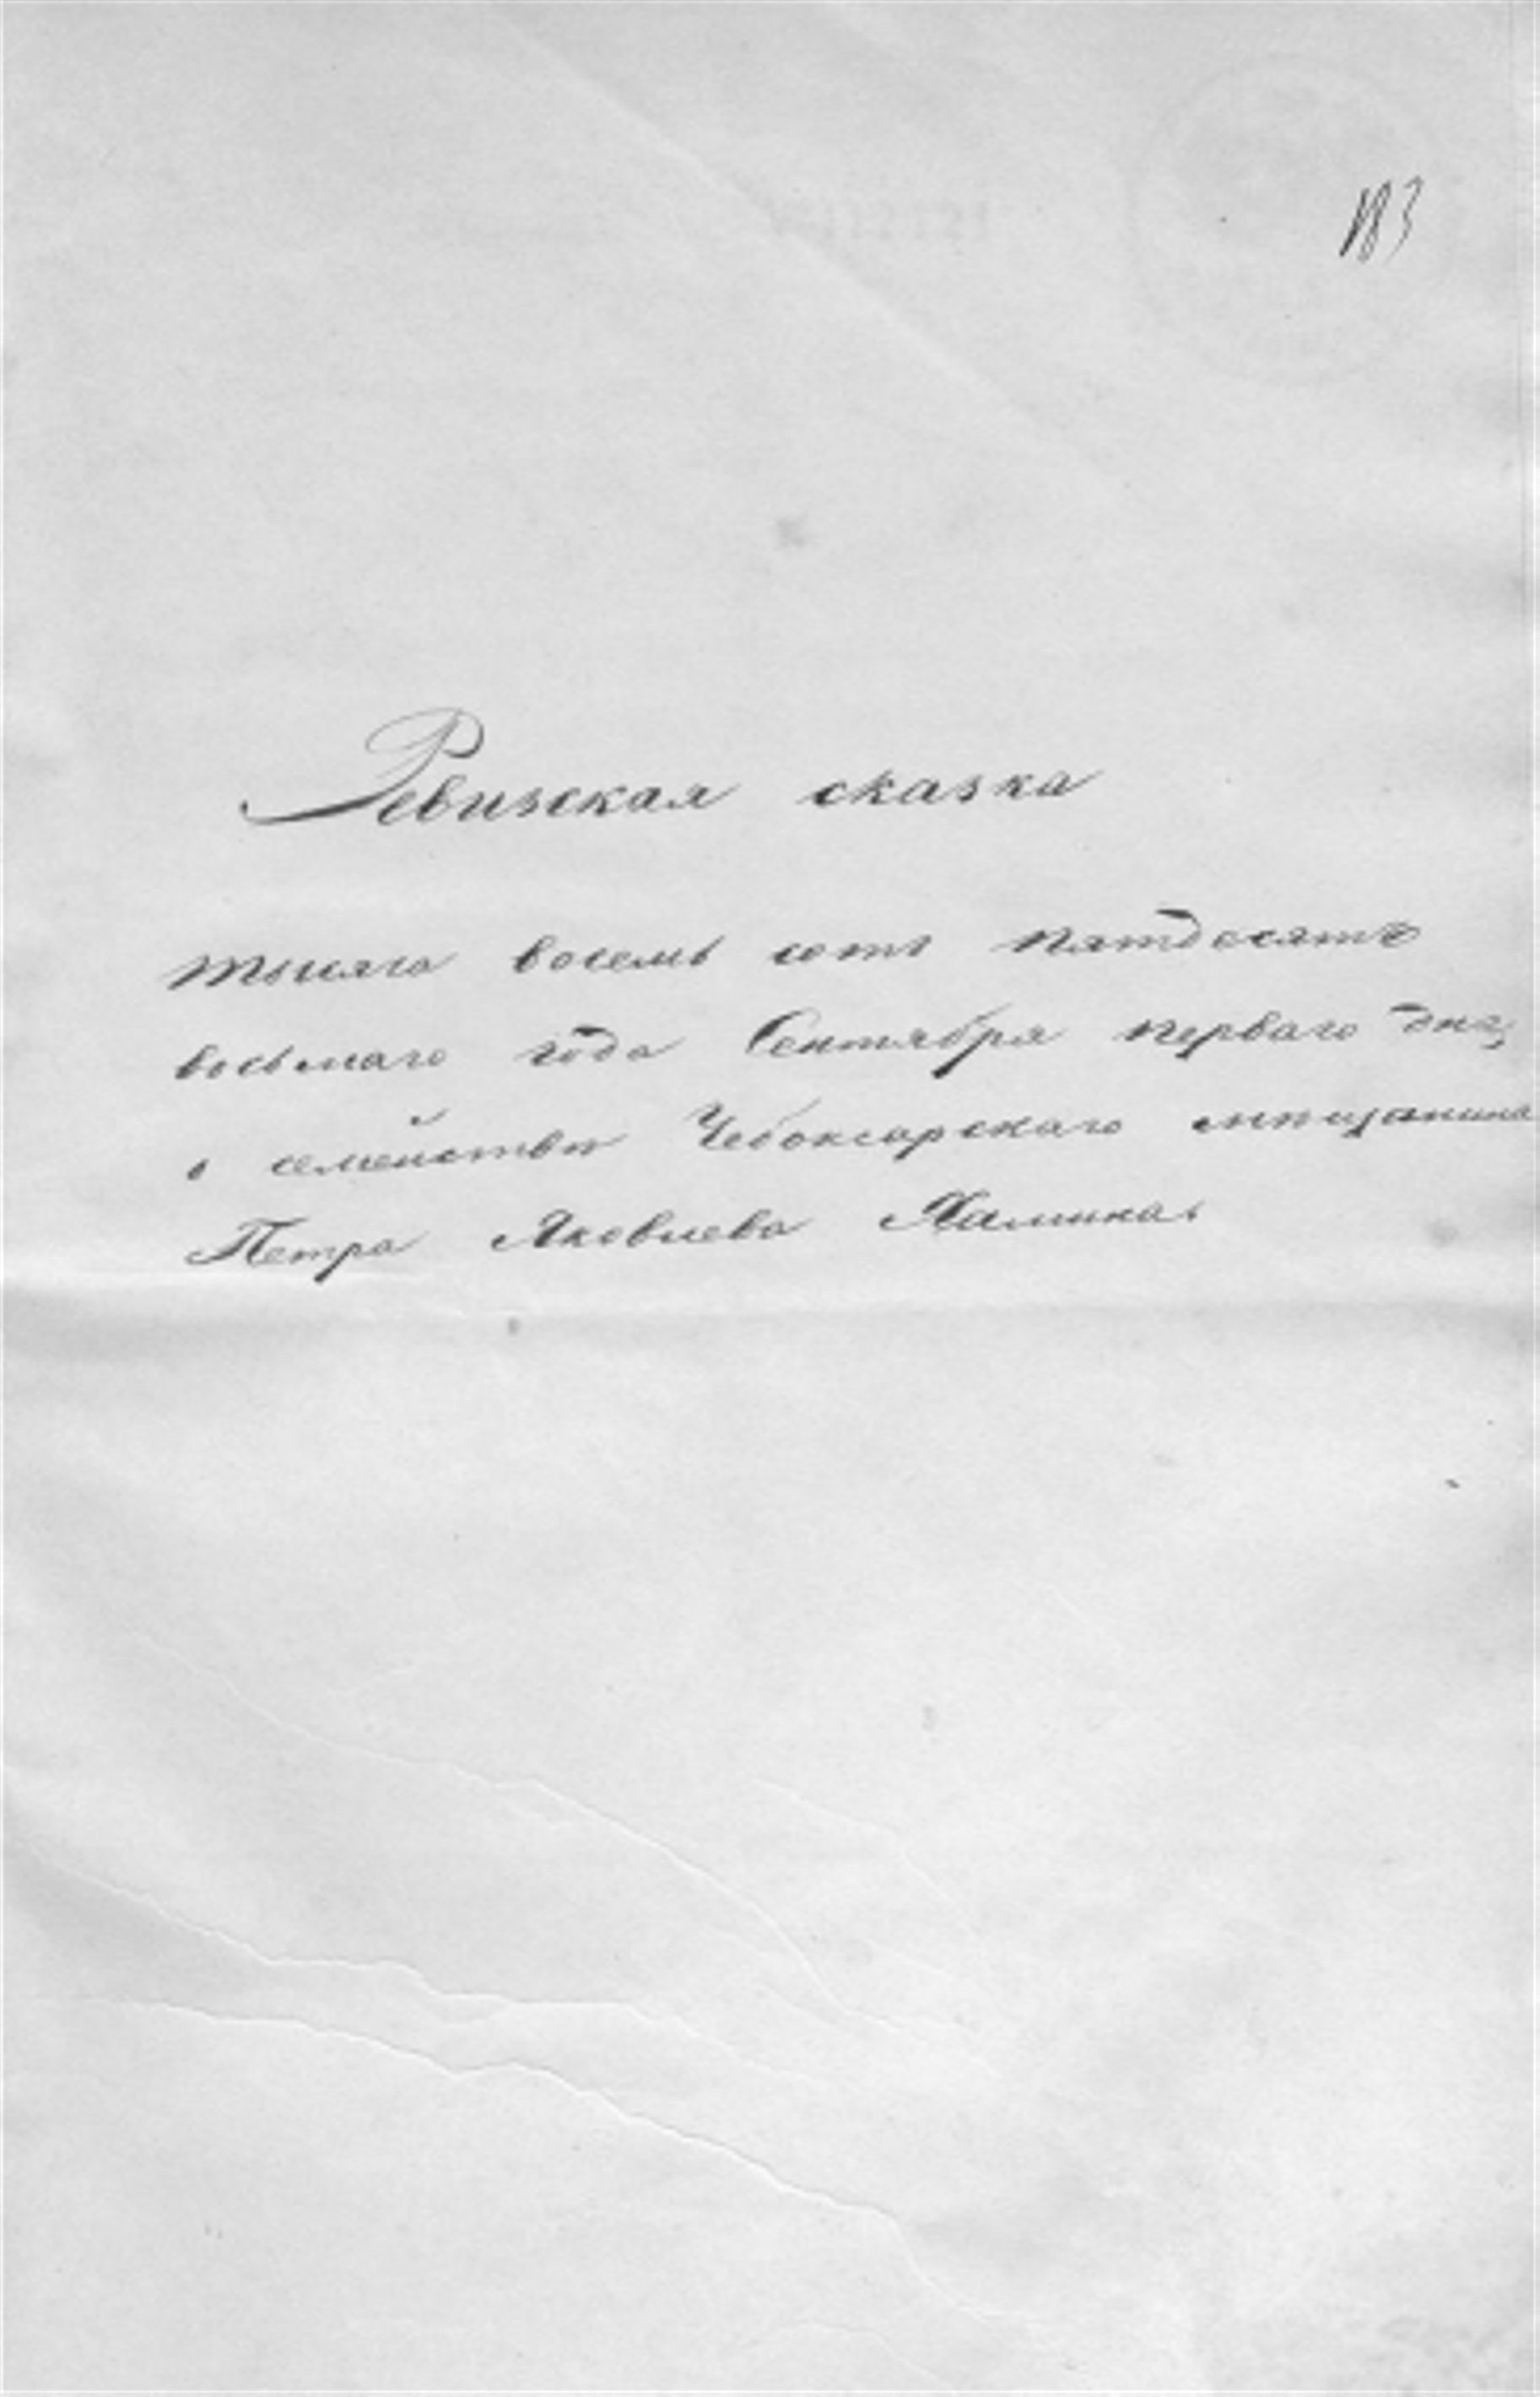 183
Ревизская сказка
тысяча восемь сотъ пятдесятъ
восьмаго года Сентября перваго дня,
о семействѣ Чебоксарскаго мѣщанина
Петра Яковлева